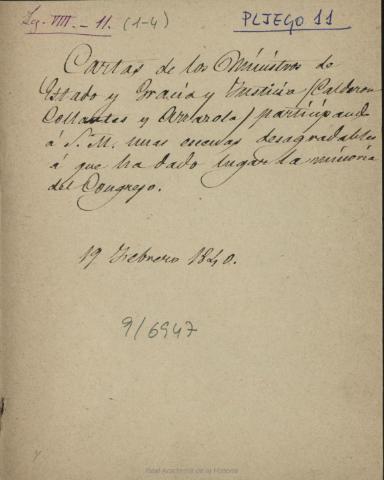 Lg. VIII. - 11. (1-4)
PLIEGO 11
Cartas de los Ministros de
Estado y Gracia y Justicia (Calderon
Collantes y Arrazola) participando
á S. M. unas escenas desagradables
á que ha dado lugar la minoria
del Congreso.
19 Febrero 1840.
9/6947
Real Academia de la Historia